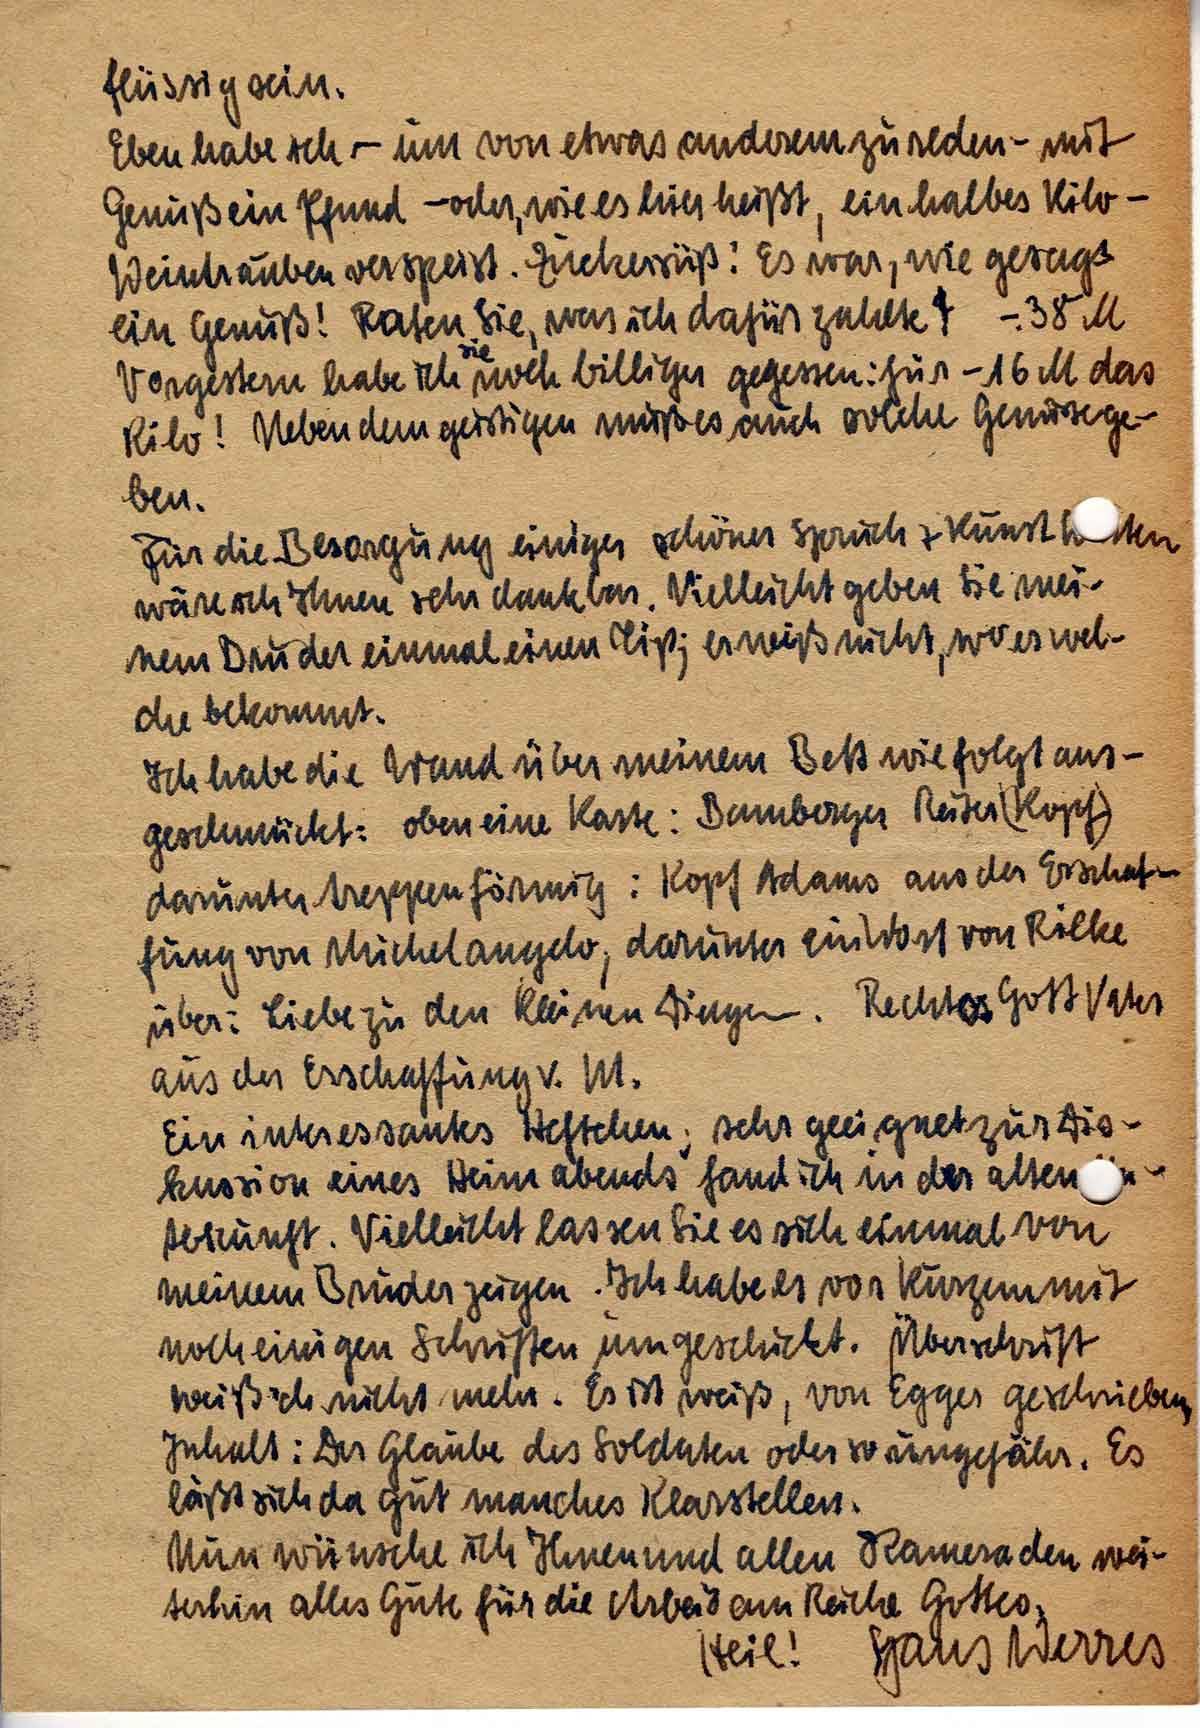 flüssig sein.
Eben habe ich – um von etwas anderem zu reden – mit
Genuß ein Pfund – oder, wie es hier heißt, ein halbes Kilo –
Weintrauben verspeist. Zuckersüß! Es war, wie gesagt
ein Genuß! Raten Sie, was ich dafür zahlte? -.38 M
Vorgestern habe ich sie noch billiger gegessen: für -16 M das
Kilo! Neben dem geistigen muß es auch solche Genüsse ge-
ben.
Für die Besorgung einiger schöner Spruch + Kunst
wäre ich Ihnen sehr dankbar. Vielleicht geben Sie mei-
nem Bruder einmal einen Tip; er weiß nicht, wo er wel-
che bekommt.
Ich habe die Wand über meinem Bett wie folgt aus-
geschmückt: oben eine Karte: Bamberger Reiter (Kopf)
darunter treppenförmig: Kopf Adams aus der Erschaf-
fung von Michelangelo, darunter ein Wort von Rilke
über: Liebe zu den kleinen Dingen. Rechts Gott Vater
aus der Erschaffung v. M.
Ein interessantes Heftchen, sehr geeignet zur Dis-
kussion eines Heimabends fand ich in der alten Un-
terkunft. Vielleicht lassen Sie es sich einmal von
meinem Bruder zeigen. Ich habe es vor kurzem mit
noch einigen Schriften umgeschickt. Überschrift
weiß ich nicht mehr. Es ist weiß, von Egger geschrieben,
Inhalt: Der Glaube des Soldaten oder so ungefähr. Es
läßt sich da gut manches klarstellen.
Nun wünsche ich Ihnen und allen Kameraden wei-
terhin alles Gute für die Arbeit am Reiche Gottes.
Heil! Hans Werres